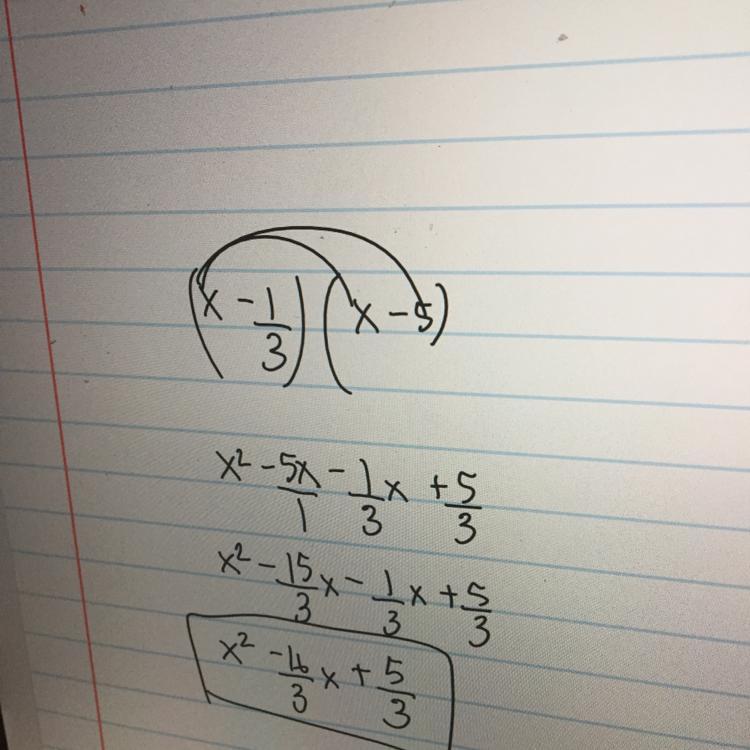 (x - 1/3)(x - 5)
x² - 5x/1 - 1/3 x + 5/3
x² - 15/3 x - 1/3 x + 5/3
x² - 16/3 x + 5/3